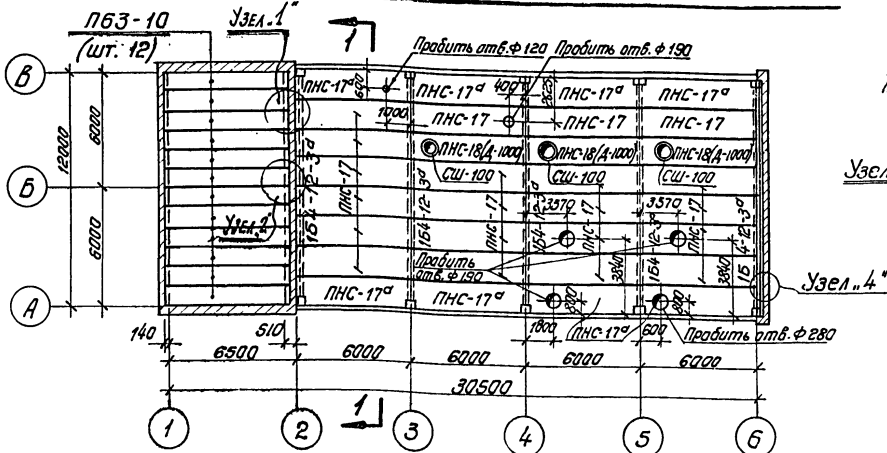 П63-10
(шт. 12)
Узел „1“
1
Пробить отв. Ф 120
Пробить отв. Ф 190
В
ПНС-17ᵃ
600
400
ПНС-17ᵃ
2625
ПНС-17ᵃ
ПНС-17ᵃ
1000
ПНС-17
ПНС-17
ПНС-17
6000
12000
ПНС-18(Д-1000)
ПНС-18(Д-1000)
ПНС-18(Д-1000)
СШ-100
СШ-100
СШ-100
Узел
Б
1Б4-12-3ᵃ
ПНС-17
1Б4-12-3ᵃ
ПНС-17
1Б4-12-3ᵃ
3570
ПНС-17
1Б4-12-3ᵃ
3570
ПНС-17
1Б4-12-3ᵃ
Узел „2“
6000
Пробить
отв. Ф190
3840
3840
Узел „4“
А
ПНС-17ᵃ
ПНС-17ᵃ
800
800
1800
ПНС-17ᵃ
600
Пробить отв. Ф 280
140
510
6500
6000
6000
6000
6000
30500
1
1
2
3
4
5
6